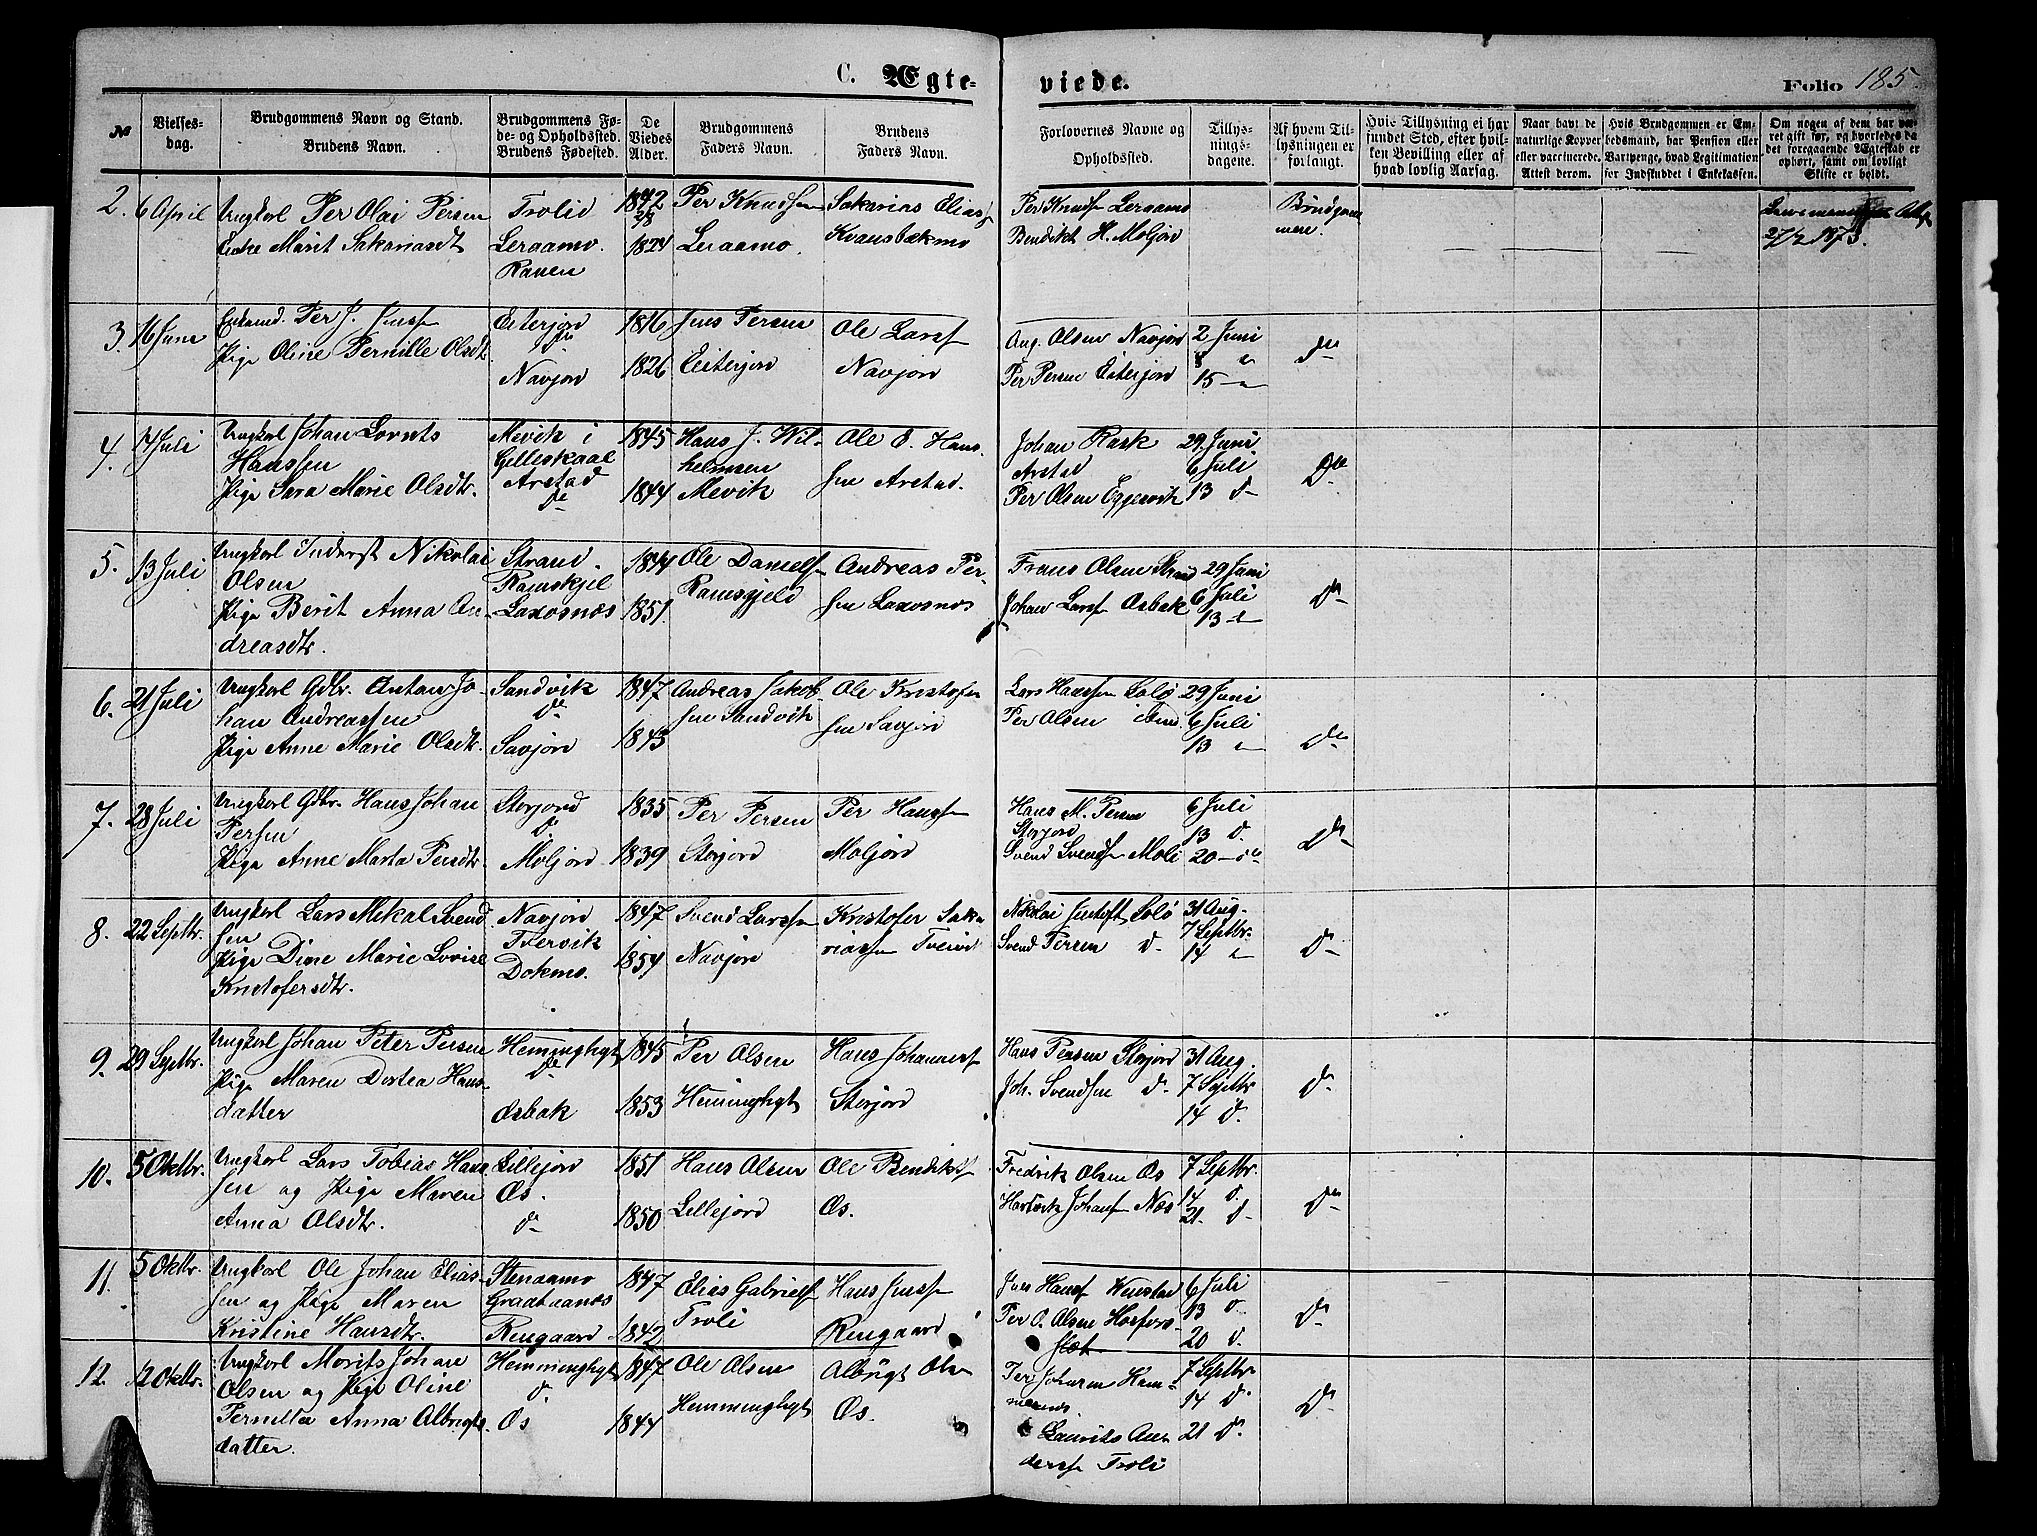 C. Ægte-
viede.
Folio 185
№
Vielses-
dag.
Brudgommens Navn og Stand.
Brudens Navn.
Brudgommens Fø-
de- og Opholdssted.
Brudens Fødested.
De
Viedes
Alder.
Brudgommens
Faders Navn.
Brudens
Faders Navn.
Forlovernes Navne og
Opholdssted.
Tillys-
nings-
dagene.
Af hvem Til-
lysningen er
forlangt.
Hvis Tillysning ei har
fundet Sted, efter hvil-
ken Bevilling eller af
hvad lovlig Aarsag.
Naar havt de
naturlige Kopper
eller vaccinerede.
Attest derom.
Hvis Brudgommen er Em-
bedsmand, har Pension eller
Vartpenge, hvad Legitimation
for Indskuddet i Enkekassen.
Om nogen af dem har væ-
ret gift før, og hvorledes da
det foregaaende Ægteskab er
ophørt, samt om lovligt
Skifte er holdt.
2. 6 April
Ungkarl Per Olai Persen
Enke Marit Sakariasdt
Trolid
Leraamo.
Ranen
1842
1824
Per Knudsen
Leraamo
Sakarias Elias
Kvansbækmo
Per Knuds Leraamo
Bendikt H. Moljord
Brudgom
men.
27/2 1873.
3. 16 Juni
Enkemd. Per J. Jenss
Pige Oline Pernille Olsdt.
Eiterjord
do
Navjord
1816
1826
Jens Persen
Eiterjord
Ole Larss
Navjord
Aug. Olsen Navjord
Per Persen Eiterjord
2 Juni
8 "
15 — "
Do
4. 14 Juli
Ungkarl Johan Lornts
Hanssen
Pige Sara Marie Olsdtr.
Mevik i
Gilleskaal
Arstad
do
1845
1844
Hans J. Wil-
helmsen
Mevik
Ole E. Hans-
sen Arstad.
Johan Rask
Arstad
Per Olsen Eggesvik
29 Juni
6 Juli
13 d-
Do
5. 13 Juli
Ungkarl Inderst Nikolai
Olsen
Pige Berit Anna An-
dreasdtr.
Strand.
Ramskjel
Laxosnæs
1844
1851.
Ole Daniels
Ramsgjeld
Andreas Per-
sen Laxosnæs
Frans Olsen Strand
Johan Larss Osbak
29 Juni
6 Juli
13 "
Do
6. 21 Juli
Ungkarl Gdbr. Anton Jo-
han Andreassen
Pige Anne Marie Olsdtr.
Sandvik
Do
Savjord
1847
1843
Andreas Jakob-
sen Sandvik
Ole Kristofer
sen Savjord
Lars Hanssen Solø
Per Olsen ibid.
29 Juni
6 Juli
13 "
Do
7. 28 Juli
Ungkarl Gdbr. Hans Johan
Persen
Pige Anne Marta Persdtr.
Storjord
Do
Moljord
1835
1839
Per Persen
Storjord
Per Hanss
Moljord
Hans M. Persen
Storjord
Svend Svends Moli
6 Juli
13 d.
20 — do
Do
8. 22 Septbr.
Ungkarl Lars Mekal Svend
sen
Pige Dine Marie Lovise
Kristofersdtr.
Navjord
Tvervik
Dokmo.
1847
1854
Svend Larss
Navjord
Kristofer Saka
riassen
Nikolai Solø
Svend Persen D-
31 Aug.
7 Septbr.
14 "
Do
9. 29 Septbr.
Ungkarl Johan Peter Persen
Pige Maren Dortea Hans-
datter
Hemminghyt
Do
Osbak
1845
1853
Per Olsen
Hemminghyt
Hans Johanness
Storjord
Hans Persen Storjord
Joh. Svendsen D-
31 Aug.
7 Septbr
14 D.
Do
10. 5 Oktbr.
Ungkarl Lars Tobias Hans
sen og Pige Maren
Anna Olsdtr.
Lillejord
Os.
do
1851
1850
Hans Olsen
Lillejord
Ole Bendikts
Os.
Fredrik Olsen Os
Hartvik Johans Næs
7 Septbr.
14 d.
21. d-
Do
11. 5 Oktbr.
Ungkarl Ole Johan Elias-
sen og Pige Maren
Kristine Hansdtr.
Stenaamo
Graataanæs
Rengaard
1847
1842
Elias Gabriels
Troli
Hans Jenss
Rengaard
Jens Hans Wenstad
Per O. Olsen
6 Juli
13 d.
20 d.
Do
12. 12 Oktbr.
Ungkarl Morits Johan
Olsen og Pige Oline
Pernilla Anna Albregts
datter.
Hemminghyt
d.
Os
1847
1844
Ole Olsen
Hemminghyt
Albregt Ols
Os.
Per Johansen Ham-
mernes
Laurits An
derss Troli
7 Septbr.
14 D.
21 D.
Do